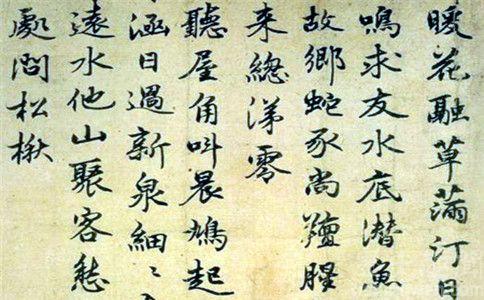 暖花融草滿汀日
鳴求友水底潛魚
故鄉蛇豕尚羶腥
来總涕零
聽屋角叫晨鳩起
涵日過新泉細〻
遠水他山聚客愁
處問松楸